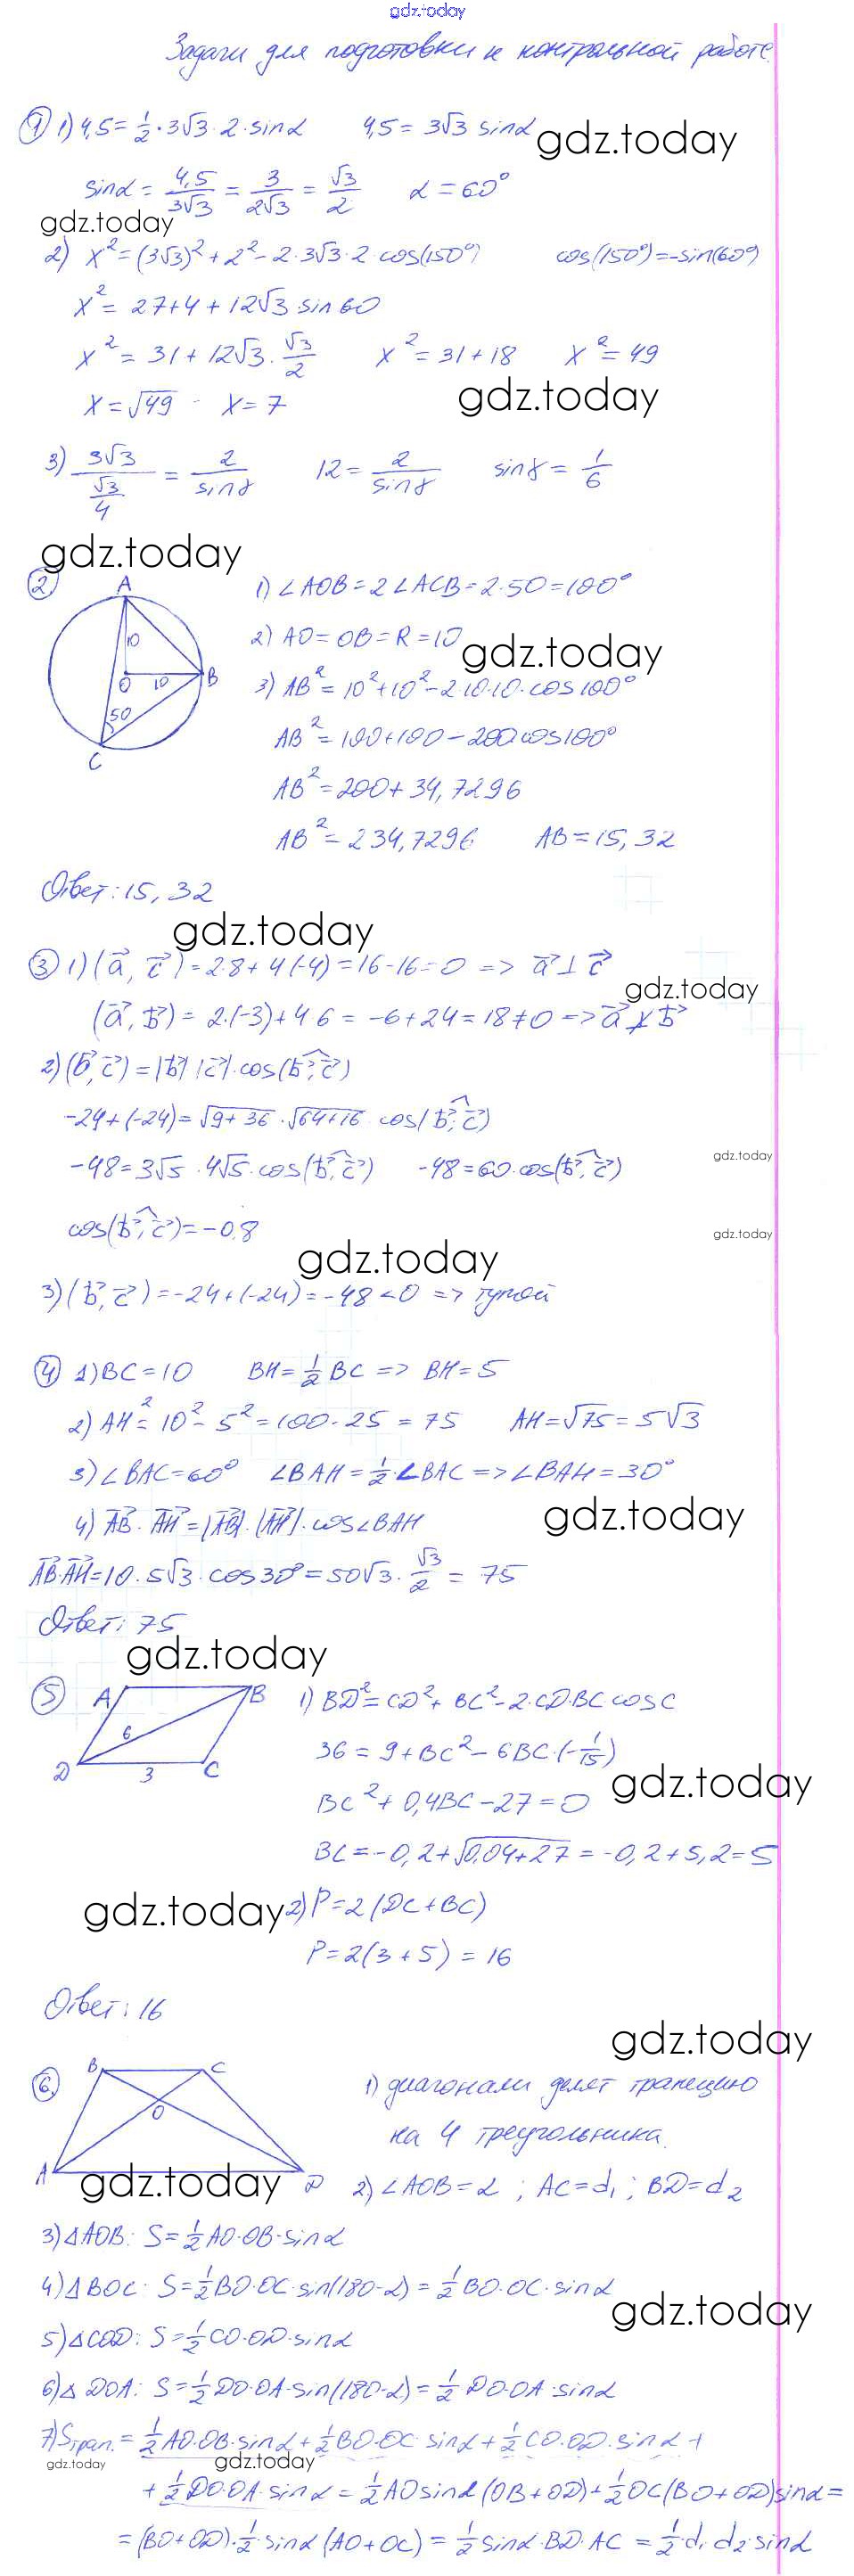 gdz.today
Задачи для подготовки к контрольной работе.
① 1) 4,5 = 1/2 · 3√3 · 2 · sinα 4,5 = 3√3 sinα
gdz.today
sinα = 4,5/3√3 = 3/2√3 = √3/2 α = 60°
gdz.today
2) x² = (3√3)² + 2² - 2·3√3·2·cos(150°) cos(150°) = -sin(60°)
x² = 27+4+12√3·sin60
x² = 31 + 12√3 · √3/2 x² = 31 + 18 x² = 49
x = √49 - x = 7
gdz.today
3) 3√3/(√3/4) = 2/sinγ 12 = 2/sinγ sinγ = 1/6
gdz.today
② A 1) ∠AOB = 2∠ACB = 2·50 = 100°
10 2) AO = OB = R = 10
gdz.today
O 10 B 3) AB² = 10²+10²-2·10·10·cos100°
50 AB² = 100+100-200cos100°
C
AB² = 200 + 34,7296
AB² = 234,7296 AB = 15,32
Ответ: 15,32
gdz.today
③ 1) (a⃗, c⃗) = 2·8 + 4(-4) = 16-16 = 0 => a⃗ ⊥ c⃗
gdz.today
(a⃗, b⃗) = 2·(-3)+4·6 = -6+24 = 18 ≠ 0 => a⃗ ⊥̸ b⃗
2) (b⃗, c⃗) = |b⃗| |c⃗|·cos(b⃗,^c⃗)
-24+(-24) = √9+36 · √64+16 · cos(b⃗,^c⃗)
gdz.today
-48 = 3√5 · 4√5 · cos(b⃗,^c⃗) -48 = 60·cos(b⃗,^c⃗)
cos(b⃗,^c⃗) = -0,8
gdz.today
gdz.today
3) (b⃗, c⃗) = -24+(-24) = -48 < 0 => тупой
④ 1) BC = 10 BH = 1/2 BC => BH = 5
2) AH² = 10² - 5² = 100 - 25 = 75 AH = √75 = 5√3
3) ∠BAC = 60° ∠BAH = 1/2 ∠BAC => ∠BAH = 30°
gdz.today
4) AB⃗ · AH⃗ = |AB⃗|·|AH⃗|·cos∠BAH
AB⃗·AH⃗ = 10·5√3·cos30° = 50√3 · √3/2 = 75
Ответ: 75
gdz.today
⑤ A B 1) BD² = CD² + BC² - 2·CD·BC cosC
6 36 = 9 + BC² - 6BC·(-1/15)
D 3 C
gdz.today
BC² + 0,4BC - 27 = 0
BC = -0,2 + √0,04+27 = -0,2+5,2 = 5
gdz.today
2) P = 2(DC + BC)
P = 2(3+5) = 16
Ответ: 16
gdz.today
⑥ B C 1) диагонали делят трапецию
O на 4 треугольника.
A D 2) ∠AOB = α ; AC = d₁ ; BD = d₂
gdz.today
3) △AOB: S = 1/2 AO·OB·sinα
4) △BOC: S = 1/2 BO·OC·sin(180-α) = 1/2 BO·OC·sinα
gdz.today
5) △COD: S = 1/2 CO·OD·sinα
6) △DOA: S = 1/2 DO·OA·sin(180-α) = 1/2 DO·OA·sinα
7) Sтрап. = 1/2 AO·OB·sinα + 1/2 BO·OC·sinα + 1/2 CO·OD·sinα +
gdz.today gdz.today
+ 1/2 DO·OA·sinα = 1/2 AO sinα (OB+OD) + 1/2 OC(BO+OD)sinα =
= (BO+OD)·1/2·sinα(AO+OC) = 1/2 sinα·BD·AC = 1/2·d₁ d₂·sinα